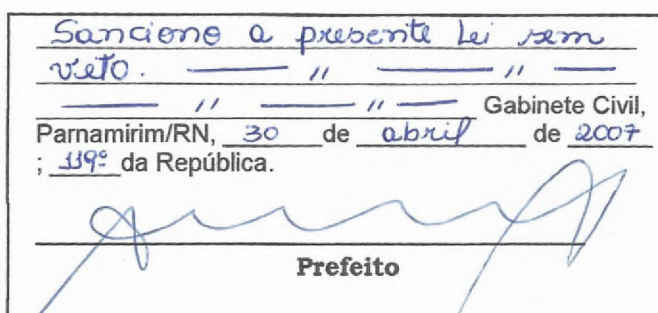 Sanciono a presente Lei sem
veto. ——— " ——— " ———
——— " ——— " ——— Gabinete Civil,
Parnamirim/RN, 30 de abril de 2007
; 119º da República.
Prefeito